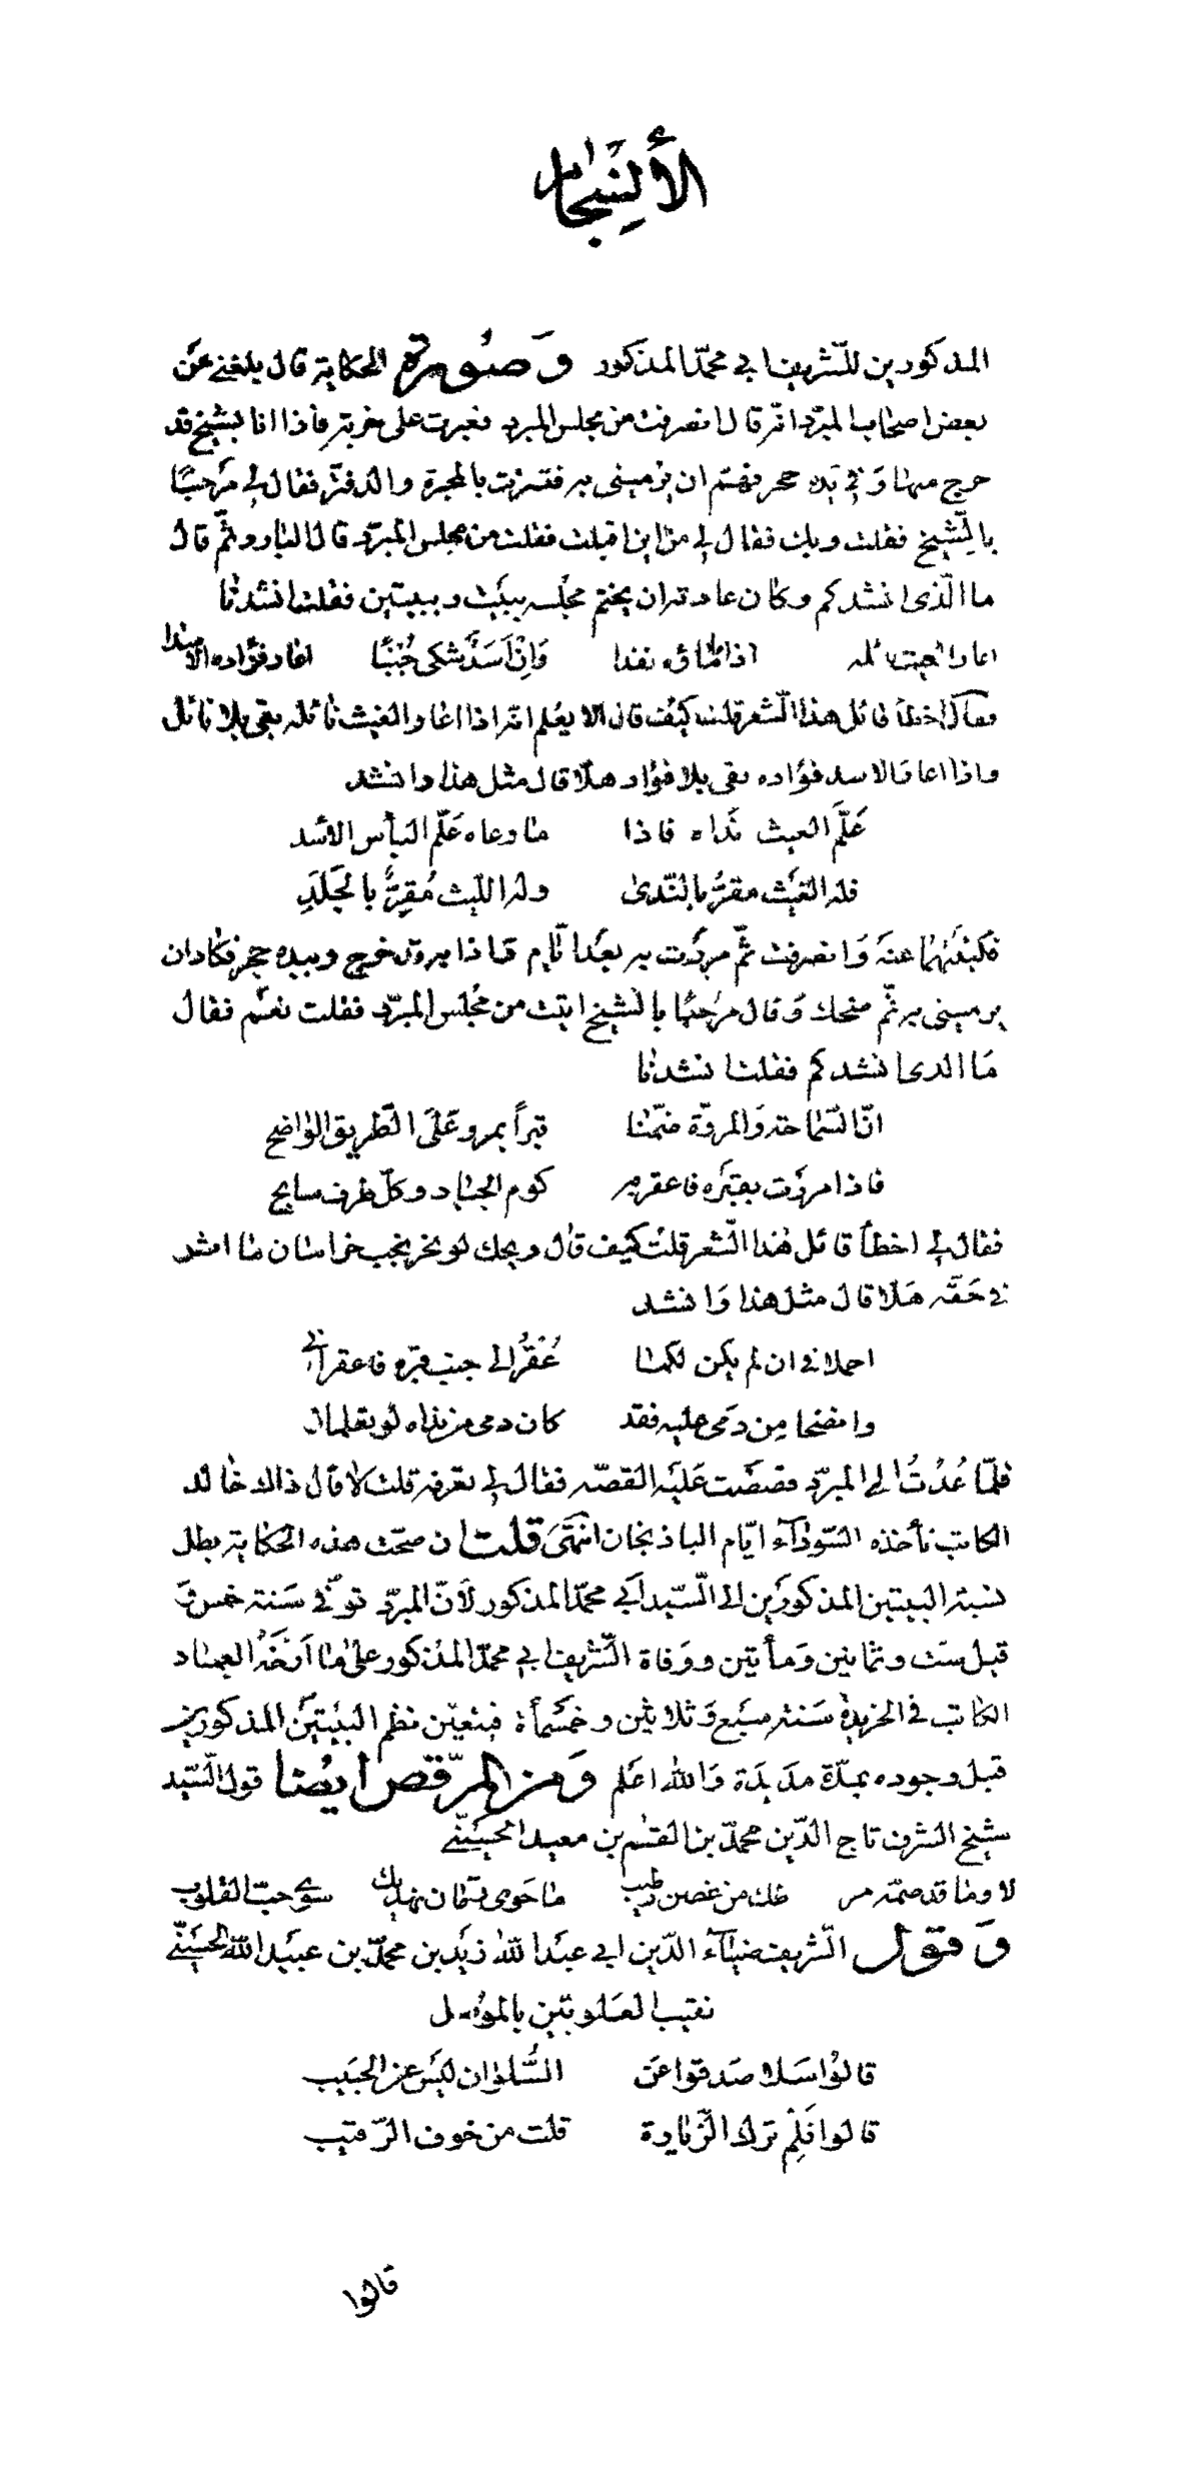 الأنسجام
المذكورين للشريف ابي محمّد المذكور وَصُورة الحكاية قال بلغني عَن
بعض اصحاب المبرّد انّه قال انصرفت من مجلس المبرد فعبرت على خربة فاذا انا بشيخ قد
خرج منها وَفي يَده حجر فهمّ ان يرميني به فتترّست بالمحبرة والدفتر فقال لي مَرحبًا
بالشّيخ فقلت وبك فقال لي من اين اقبلت فقلت من مجلس المبرّد قال البارد ثمّ قال
ما الّذي انشدكم وكان عادته ان يختم مجلسه ببيت وببيتين فقلت انشدنا
اعار الغيث نائله اذا ماماؤه نفدا وَاِن اَسَدٌ شكى جُبْنًا اعار فؤاده الاسدا
فقال اخطأ قائل هذا الشّعر قلت كيف قال الا يعلم انّه اذا اعار الغيث نائله بقي بلا نائل
واذا اعار الاسد فؤاده بقي بلا فؤاد هلّا قال مثل هذا وانشد
عَلَّم الغيث نَداه فاذا ما وعاه عَلّم البأس الاسَد
فله الغيث مقرٌّ بالنّدى وله اللّيث مُقِرٌّ بالجَلَدِ
فكتبتهما عنه وَانصرفت ثمّ مررت به بعد ايّام فاذا به قد خرج وبيده حجر فكاد ان
يرميني به ثمّ ضحك وَقال مرحبًا بالشيخ اتيت من مجلس المبرّد فقلت نعَم فقال
مَا الذي انشدكم فقلت انشدنا
انّ السّماحة وَالمروّة ضمّنا قبراً بمرو عَلَى الطّريق الواضح
فاذا مررت بقبره فاعقر به كوم الجياد وكلّ طرف سابح
فقال لي اخطأ قائل هذا الشّعر قلت كيف قال ويحك لو نحر نجب خراسان ما اثر
في حَقّه هَلّا قال مثل هذا وَانشد
احملاني ان لم يكن لكما عُقْرٌ الى جنب قبره فاعقراني
وانضحا مِن دَمي عليه فقد كان دمي من نداه لو تعلمان
فلمّا عُدْتُ الى المبرّد قصصت عَليه القصّه فقال لي تعرفه قلت لا قال ذلك خالد
الكاتب تأخذه السّوداء ايّام الباذنجان انتَهَى قلت ان صحّت هذه الحكاية بطل
نسبة البيتين المذكورَين الى السّيد اَبي محمّد المذكور لاَنّ المبرّد توفّي في سَنة خمس وَ
قيل ست وثمانين وَمأتين ووَفاة الشّريف ابي محمّد المذكور على ما اَرّخَه العماد
الكاتب في الخريدة سَنة سَبع وَثلاثين وخمسَمأة فيتعيّن نظم البيتَين المذكورين
قبل وجوده بمدّة مديدَة وَالله اعلم وَمن المرّقص ايضا قول السّيد
شيخ الشرف تاج الدّين محمدّ بن القسم بن معيه الحسَنيّ
لا وما قد ضمّه من ظلك من غصن رطيب ما حَوى بستان نهديك سوى حبّ القلوب
وَقول الشّريف ضياء الدّين ابي عبَد الله زيَد بن محمدّ بن عبيَد الله الحسَينيّ
نقيب العلَويّين بالموصل
قالوا سَلا صَدقوا عَن السُّلوان ليسَ عن الحبَيب
قالوا فَلِمْ ترك الزّيارة قلت من خوف الرّقيب
قالوا